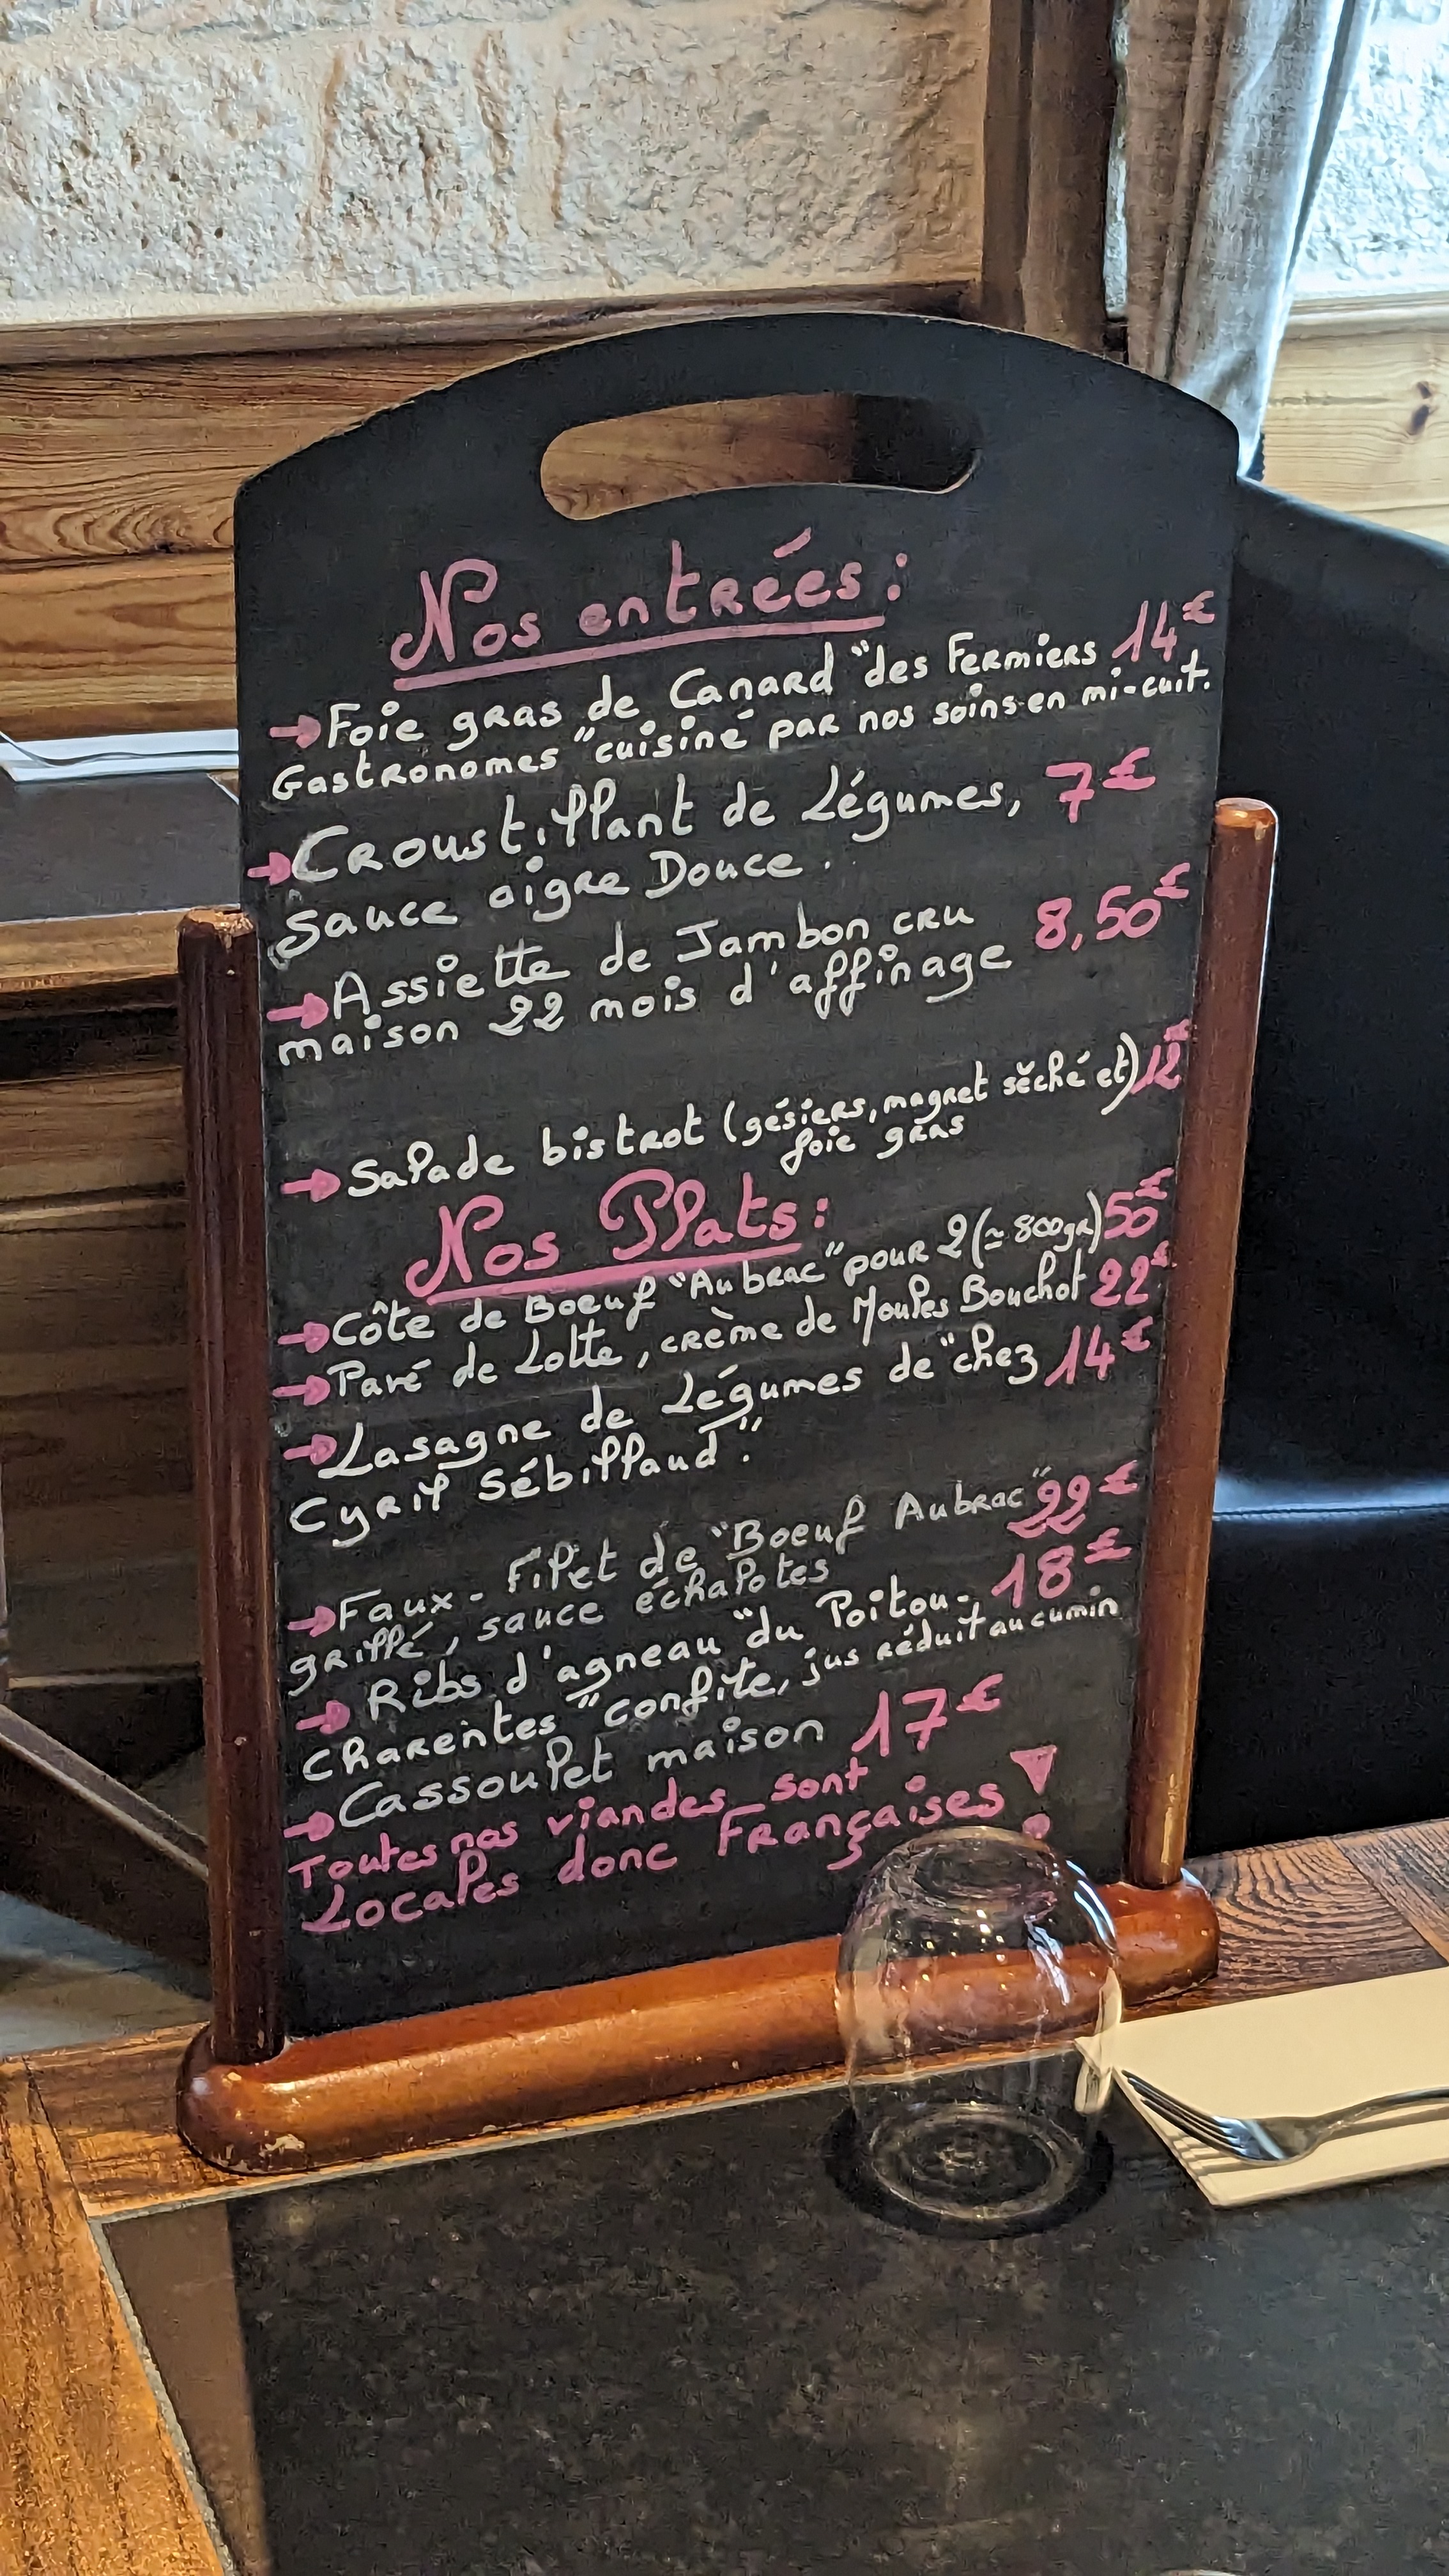 Nos entrées :
→ Foie gras de Canard "des Fermiers 14€
Gastronomes" cuisiné par nos soins en mi-cuit.
→ Croustillant de Légumes, 7€
sauce aigre Douce.
→ Assiette de Jambon cru 8,50€
maison 22 mois d'affinage
→ Salade bistrot (gésiers, magret séché et) 12€
foie gras
Nos Plats :
→ Côte de Boeuf "Aubrac" pour 2 (≃ 800gr) 50€
→ Pavé de Lotte, crème de Moules Bouchot 22€
→ Lasagne de Légumes de "chez 14€
Cyril Sébillaud".
→ Faux-Filet de "Boeuf Aubrac" 22€
grillé, sauce échalotes
→ Ribs d'agneau "du Poitou- 18€
Charentes" confite, jus réduit au cumin
→ Cassoulet maison 17€
Toutes nos viandes sont
Locales donc Françaises !